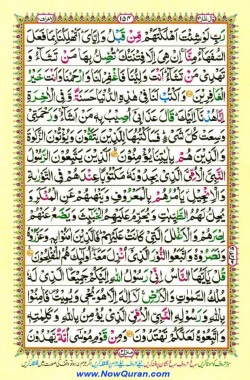 ١٥٤
رَبِّ لَوْ شِئْتَ اَهْلَكْتَهُمْ مِّنْ قَبْلُ وَاِيَّايَ ؕ اَتُهْلِكُنَا بِمَا فَعَلَ
السُّفَهَآءُ مِنَّا ۚ اِنْ هِيَ اِلَّا فِتْنَتُكَ ؕ تُضِلُّ بِهَا مَنْ تَشَآءُ وَ
تَهْدِيْ مَنْ تَشَآءُ ؕ اَنْتَ وَلِيُّنَا فَاغْفِرْ لَنَا وَارْحَمْنَا وَاَنْتَ خَيْرُ
الْغٰفِرِيْنَ وَاكْتُبْ لَنَا فِيْ هٰذِهِ الدُّنْيَا حَسَنَةً وَّفِي الْاٰخِرَةِ
اِنَّا هُدْنَآ اِلَيْكَ ؕ قَالَ عَذَابِيْٓ اُصِيْبُ بِهٖ مَنْ اَشَآءُ ۚ وَرَحْمَتِيْ
وَسِعَتْ كُلَّ شَيْءٍ ؕ فَسَاَكْتُبُهَا لِلَّذِيْنَ يَتَّقُوْنَ وَيُؤْتُوْنَ الزَّكٰوةَ
وَالَّذِيْنَ هُمْ بِاٰيٰتِنَا يُؤْمِنُوْنَ اَلَّذِيْنَ يَتَّبِعُوْنَ الرَّسُوْلَ
النَّبِيَّ الْاُمِّيَّ الَّذِيْ يَجِدُوْنَهٗ مَكْتُوْبًا عِنْدَهُمْ فِي التَّوْرٰىةِ
وَالْاِنْجِيْلِ يَاْمُرُهُمْ بِالْمَعْرُوْفِ وَيَنْهٰىهُمْ عَنِ الْمُنْكَرِ وَ
يُحِلُّ لَهُمُ الطَّيِّبٰتِ وَيُحَرِّمُ عَلَيْهِمُ الْخَبٰٓئِثَ وَيَضَعُ عَنْهُمْ
اِصْرَهُمْ وَالْاَغْلٰلَ الَّتِيْ كَانَتْ عَلَيْهِمْ ؕ فَالَّذِيْنَ اٰمَنُوْا بِهٖ وَعَزَّرُوْهُ
وَنَصَرُوْهُ وَاتَّبَعُوا النُّوْرَ الَّذِيْٓ اُنْزِلَ مَعَهٗٓ ۙ اُولٰٓئِكَ هُمُ الْمُفْلِحُوْنَ
قُلْ يٰٓاَيُّهَا النَّاسُ اِنِّيْ رَسُوْلُ اللّٰهِ اِلَيْكُمْ جَمِيْعَا ۨ الَّذِيْ لَهٗ
مُلْكُ السَّمٰوٰتِ وَالْاَرْضِ ۚ لَآ اِلٰهَ اِلَّا هُوَ يُحْيٖ وَيُمِيْتُ ۪ فَاٰمِنُوْا
بِاللّٰهِ وَرَسُوْلِهِ النَّبِيِّ الْاُمِّيِّ الَّذِيْ يُؤْمِنُ بِاللّٰهِ وَكَلِمٰتِهٖ وَ
اتَّبِعُوْهُ لَعَلَّكُمْ تَهْتَدُوْنَ وَمِنْ قَوْمِ مُوْسٰٓى اُمَّةٌ يَّهْدُوْنَ
www.NowQuran.com